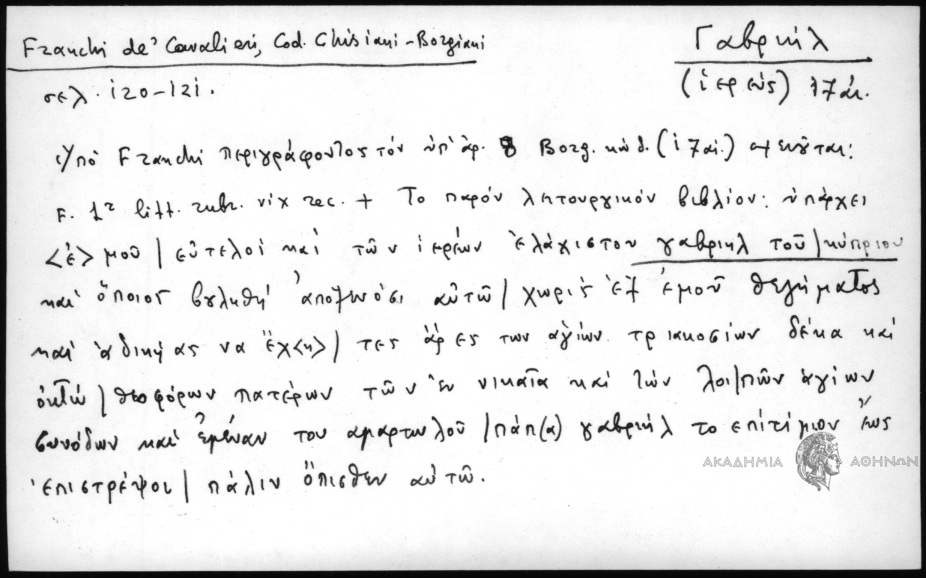 Franchi de' Cavalieri, Cod. Chisiani-Borgiani
Γαβριήλ
σελ. 120-121.
(ἱερεύς) 17 αἰ.
Ὑπό Franchi περιγράφοντος τόν ὑπ' ἀρ. 8 Borg. κώδ. (17 αἰ.)
F. 1r litt. rubr. vix rec. + Το παρόν λητουργικόν βιβλίον: ὑπάρχει
<ἐ>μοῦ | εὐτελοί καί τῶν ἱερέων ἐλάχιστου γαβριήλ τοῦ | κύπριου
και ὅποιος βυληθῆ ἀποξενόσι αὐτῶ | χωρίς ἐξ ἐμοῦ θελήματος
και ἀδικήας να ἔχ<η> | τες ἀρές των ἁγίων τριακοσίων δέκα και
ὀκτώ | θεοφόρων πατέρων τῶν ἐν νικαία και τῶν λοι|πῶν ἁγίων
συνόδων και ἐμέναν του αμαρτωλοῦ | πάπ(α) γαβριήλ το επιτίμιον ἕως
ἐπιστρέψοι | πάλιν ὄπισθεν αὐτῶ.
ΑΚΑΔΗΜΙΑ ΑΘΗΝΩΝ